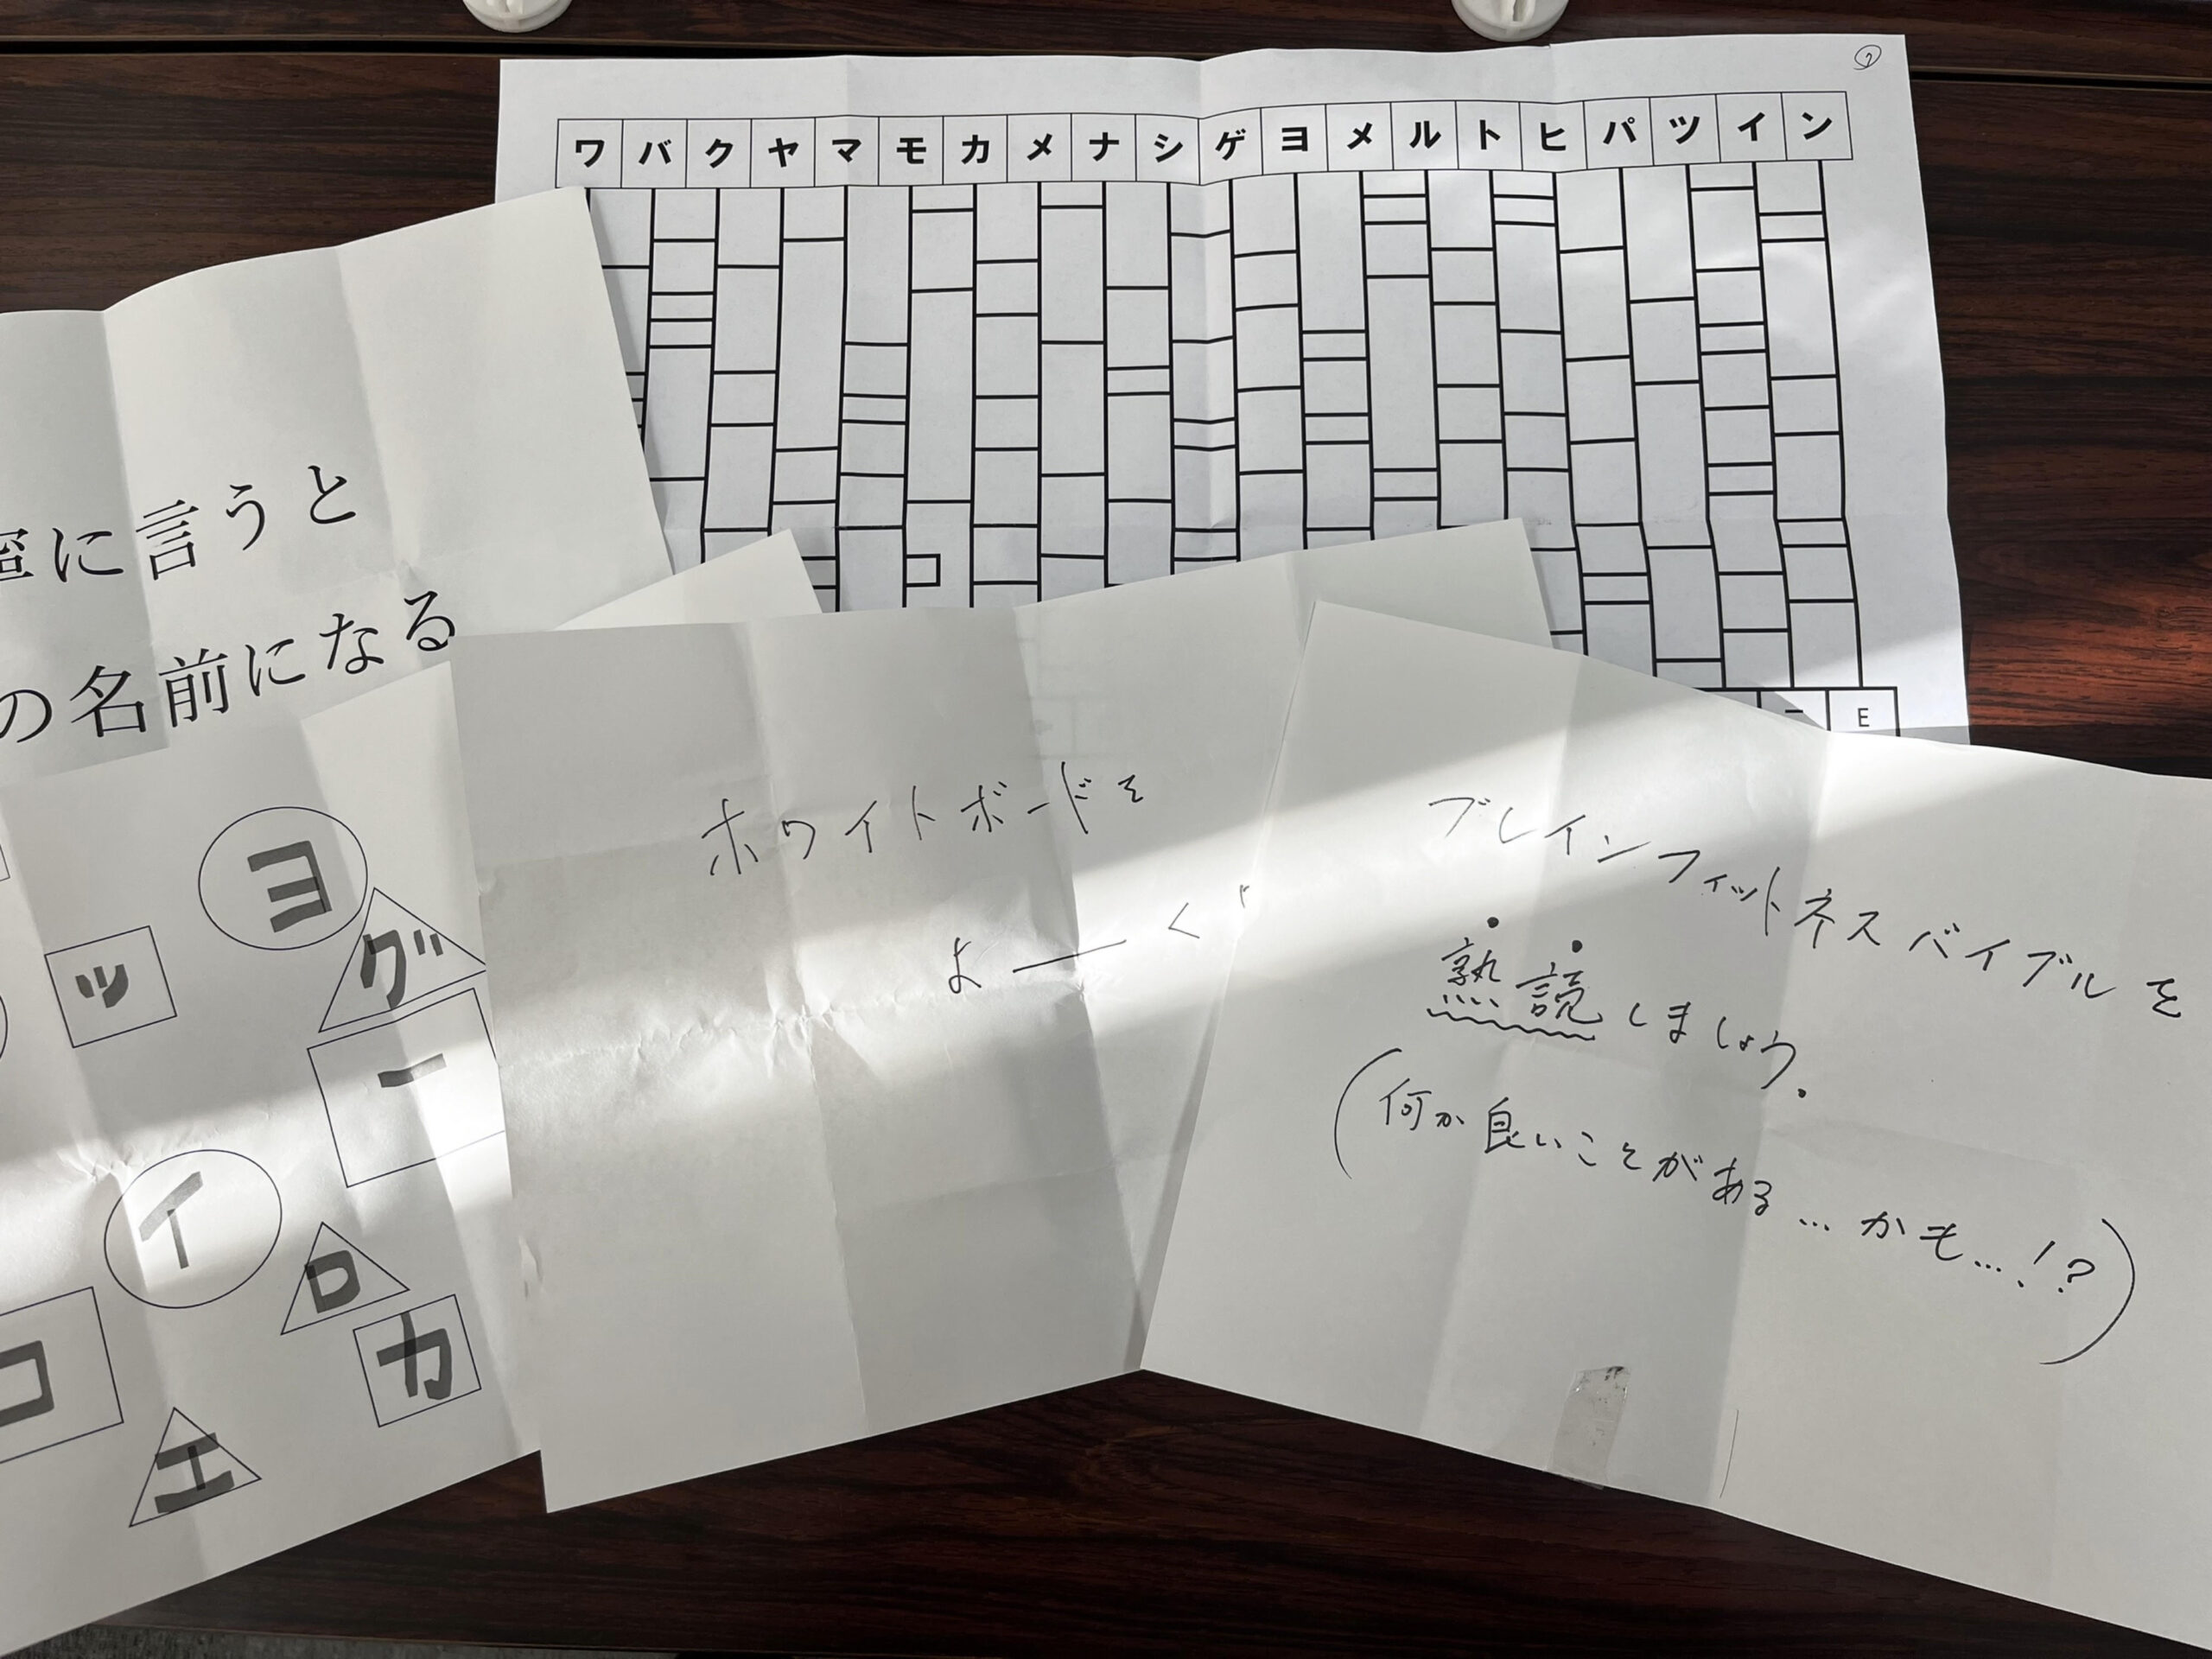 ②
ワバクヤマモカメナシゲヨメルトヒパツイン
ー E
に言うと
の名前になる
ヨ
グ
ッ
ー
イ
ロ
カ
コ
エ
ホワイトボードを
よーく
ブレインフィットネスバイブルを
熟読しましょう。
(何か良いことがある…かも…!?)